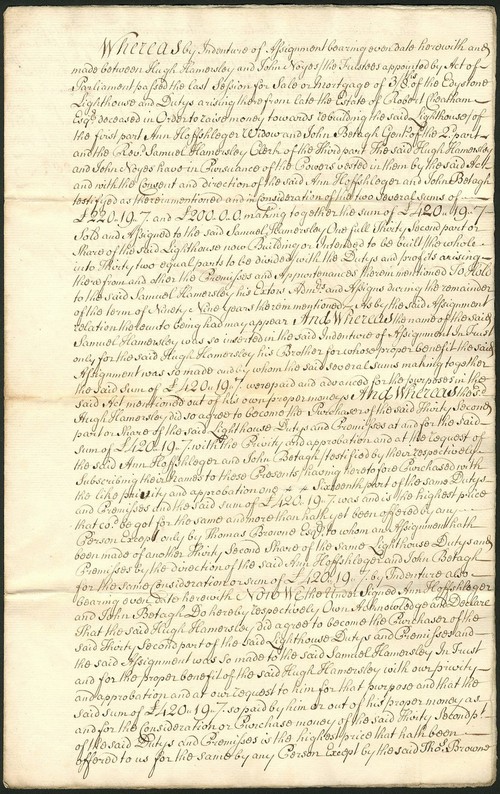 Whereas by Indenture of Assignment bearing even date herewith and
made between Hugh Hamersley and John Noyes the Trustees appointed by Act of
Parliament passed the last Session for Sale or Mortgage of 3/8ths of the Edystone
Lighthouse and Dutys arising therefrom late the Estate of Robert Cheatham
Esqr. deceased in Order to raise money towards rebuilding the said Lighthouse of
the first part Ann Hoffshleger Widow and John Betagh Gentn. of the 2d. part
and the Revd. Samuel Hamersley Clerk of the Third part The said Hugh Hamersley
and John Noyes have in Pursuance of the Powers vested in them by the said Act
and with the Consent and direction of the said Ann Hoffshleger and John Betagh
testifyed as therein mentioned and in Consideration of the two Several sums of
£220-19-7. and £200.0.0. making together the sum of £420-19-7
Sold and Assigned to the said Samuel Hamersley One full Thirty Second part or
Share of the said Lighthouse now Building or Intended to be built the whole
into Thirty two equal parts to be divided with the Dutys and profits arising
therefrom and other the Premisses and Appurtenances therein mentioned To Hold
to the said Samuel Hamersley his Extors Admrs and Assigns during the remainder
of the term of Ninety Nine Years therein mentioned As by the said Assignment
relation thereunto being had may appear And Whereas the name of the said
Samuel Hamersley was so inserted in the said Indenture of Assignment In Trust
only for the said Hugh Hamersley his Brother for whose proper benefit the said
Assignment was so made and by whom the said several sums making together
the said Sum of £420-19-7 were paid and advanced for the purposes in the
said Act mentioned out of his own proper moneys And Whereas the said
Hugh Hamersley did so agree to become the Purchaser of the said Thirty Second
part or Share of the said Lighthouse Dutys and Premisses at and for the said
sum of £420-19-7. with the Privity and approbation and at the request of
the said Ann Hoffshleger and John Betagh testifyed by their respectively
Subscribing their names to these Presents having heretofore Purchased with
the like privity and approbation one Sixteenth part of the same Dutys
and Premisses and the said sum of £420-19-7 was and is the highest price
that cod. be got for the same and more than hath yet been offered by any
Person Except only by Thomas Browne Esqr. to whom an Assignment hath
been made of another Thirty Second Share of the same Lighthouse Dutys and
Premisses by the direction of the said Ann Hoffshleger and John Betagh
for the same Consideration or sum of £420-19-7. by Indenture also
bearing even date herewith Now We the Under Signed Ann Hoffshleger
and John Betagh Do hereby respectively Own Acknowledge and Declare
That the said Hugh Hamersley did agree to become the Purchaser of the
said Thirty Second part of the said Lighthouse Dutys and Premisses and
the said Assignment was so made to the said Samuel Hamersley In Trust
and for the proper benefit of the said Hugh Hamersley with our privity
and approbation and at our request to him for that purpose and that the
said sum of £420-19-7 so paid by him or out of his proper money as
and for the Consideration or Purchase money of the said Thirty Second pt.
of the said Dutys and Premisses is the highest price that hath been
offered to us for the same by any Person Except by the said Thos. Browne